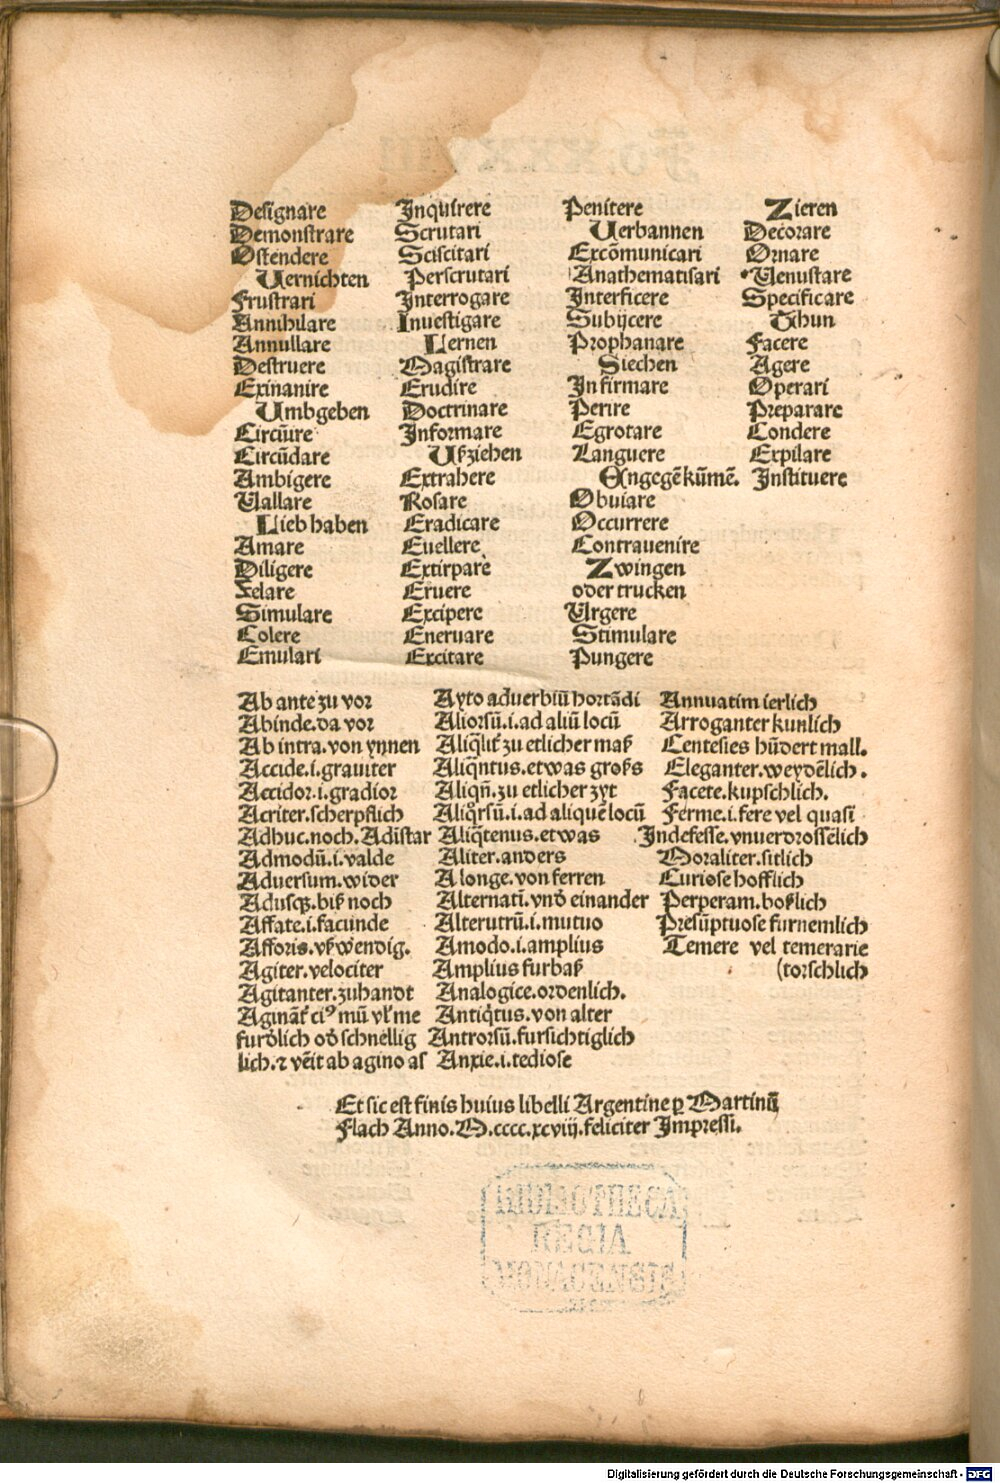 Designare
Demonstrare
Ostendere
Uernichten
Frustrari
Annihilare
Annullare
Destruere
Exinanire
Umbgeben
Circuͫire
Circūdare
Ambigere
Uallare
Lieb haben
Amare
Diligere
Felare
Simulare
Colere
Emulari
Inquirere
Scrutari
Sciscitari
Perscrutari
Interrogare
Inuestigare
Lernen
Magistrare
Erudire
Doctrinare
Informare
Ußziehen
Extrahere
Rosare
Eradicare
Euellere
Extirpare
Eruere
Excipere
Eneruare
Excitare
Penitere
Uerbannen
Excōmunicari
Anathematisari
Interficere
Subijcere
Prophanare
Siechen
Infirmare
Perire
Egrotare
Languere
Engegē kūmē.
Obuiare
Occurrere
Contrauenire
Zwingen
oder trucken
Urgere
Stimulare
Pungere
Zieren
Decorare
Ornare
Uenustare
Specificare
Thun
Facere
Agere
Operari
Preparare
Condere
Expilare
Instituere
Ab ante zu vor
Abinde.da vor
Ab intra.von ynnen
Accide.i.grauiter
Accidor.i.gradior
Acriter.scherpflich
Adhuc.noch.Adistar
Admodū.i.valde
Aduersum.wider
Adusqꝫ.biß noch
Affate.i.facunde
Afforis.vßwendig.
Agiter.velociter
Agitanter.zuhandt
Agināt ciꝰ mū vl me
furdlich od schnellig
lich.⁊ vēit ab agino as
Ayto aduerbiū hortādi
Aliorsū.i.ad aliū locū
Aliqlit zu etlicher maß
Aliqntus.etwas groß
Aliqn.zu etlicher zyt
Aliqrsū.i.ad aliquē locū
Aliqtenus.etwas
Aliter.anders
A longe.von ferren
Alternati.vnd einander
Alterutrū.i.mutuo
Amodo.i.amplius
Amplius furbaß
Analogice.ordenlich.
Antiqtus.von alter
Antrorsū.fursichtiglich
Anxie.i.tediose
Annuatim ierlich
Arroganter kunlich
Centesies hūdert mall.
Eleganter.weydēlich.
Facete.kupschlich.
Ferme.i.fere vel quasi
Indefesse.vnuerdrossēlich
Moraliter.sitlich
Curiose hofflich
Perperam.boßlich
Presūptuose furnemlich
Temere vel temerarie
(torschlich
Et sic est finis huius libelli Argentine ꝑ Martinū
Flach Anno.M.cccc.xcviij.feliciter Impressi.
BIBLIOTHECA
REGIA
MONACENSIS
Digitalisierung gefördert durch die Deutsche Forschungsgemeinschaft - DFG